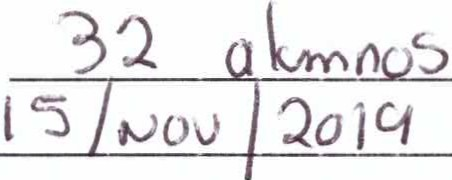 32 alumnos
15/NOV/2019